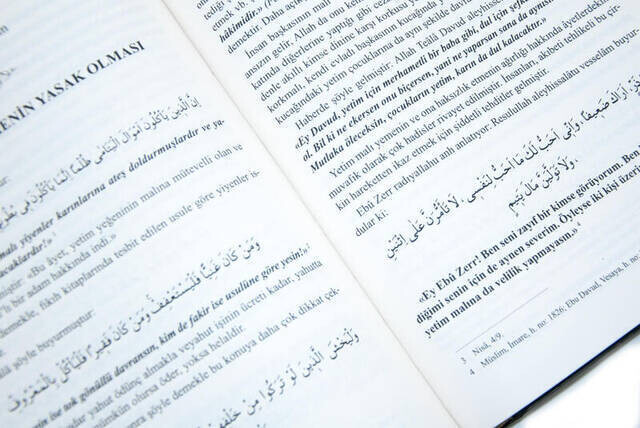 ENİN YASAK OLMASI
إِنَّ الَّذِينَ يَأْكُلُونَ أَمْوَالَ الْيَتَامَى ظُلْمًا إِنَّمَا يَأْكُلُونَ فِي
malı yiyenler karınlarına ateş doldurmuşlardır ve ya-
caklardır!»
ştir: «Bu âyet, yetim yeğeninin malına mütevelli olan ve
lı bir adam hakkında indi.»
demekle, fıkıh kitaplarında tesbit edilen usule göre yiyenler is-
şöyle buyurmuştur:
وَمَنْ كَانَ غَنِيًّا فَلْيَسْتَعْفِفْ وَمَنْ كَانَ فَقِيرًا فَلْيَأْكُلْ بِالْمَعْرُوفِ
ise tok gönüllü davransın, kim de fakir ise usulüne göre yesin!»
kadar yahut ödünç almakla veyahut işinin ücreti kadar, yahatta
mümkün olursa öder, yoksa helaldir.
sonra şöyle demekle bu konuya daha çok dikkat çek-
وَلْيَخْشَ الَّذِينَ لَوْ تَرَكُوا مِنْ
demektir. Daha açı
İnsan başkasının mal
ansızın gelir. Allah da onu ken
katında diğerlerine yaptığı gibi ceza
denle akıllı kimse dinine karşı korkusu y
korkmalı, kendi evladı başkasının kucağında y
kucağındaki yetim çocuklarına da aynı şekilde davra
Haberde şöyle gelmiştir: Allah Teâlâ Davud aleyhissel
«Ey Davud, yetim için merhametli bir baba gibi, dul için şefk
ol. Bil ki ne ekersen onu biçersen, yani ne yaparsan sana da aynısı
Mutlaka öleceksin, çocukların yetim, karın da dul kalacaktır.»
Yetim malı yemenin ve ona haksızlık etmenin ağırlığı hakkında âyetlerdekine
muvafık olarak çok hadisler rivayet edilmiştir. İnsanları, akıbeti tehlikeli bu çir-
kin hareketten ikaz etmek için şiddetli tehditler gelmiştir.
Ebû Zerr radıyallahu anh anlatıyor: Resulullah aleyhissalâtu vesselâm buyur-
dular ki:
أَرَاكَ ضَعِيفًا، وَإِنِّي أُحِبُّ لَكَ مَا أُحِبُّ لِنَفْسِي، لَا تَأَمَّرَنَّ عَلَى اثْنَيْنِ
وَلَا تَوَلَّيَنَّ مَالَ يَتِيمٍ
«Ey Ebû Zerr! Ben seni zayıf bir kimse görüyorum. Ben
diğimi senin için de aynen severim. Öyleyse iki kişi üzeri
yetim malına da velilik yapmayasın.»4
3 Nisâ, 4/9.
4 Müslim, İmare, h. no: 1826; Ebu Davud, Vesaya, h. no: